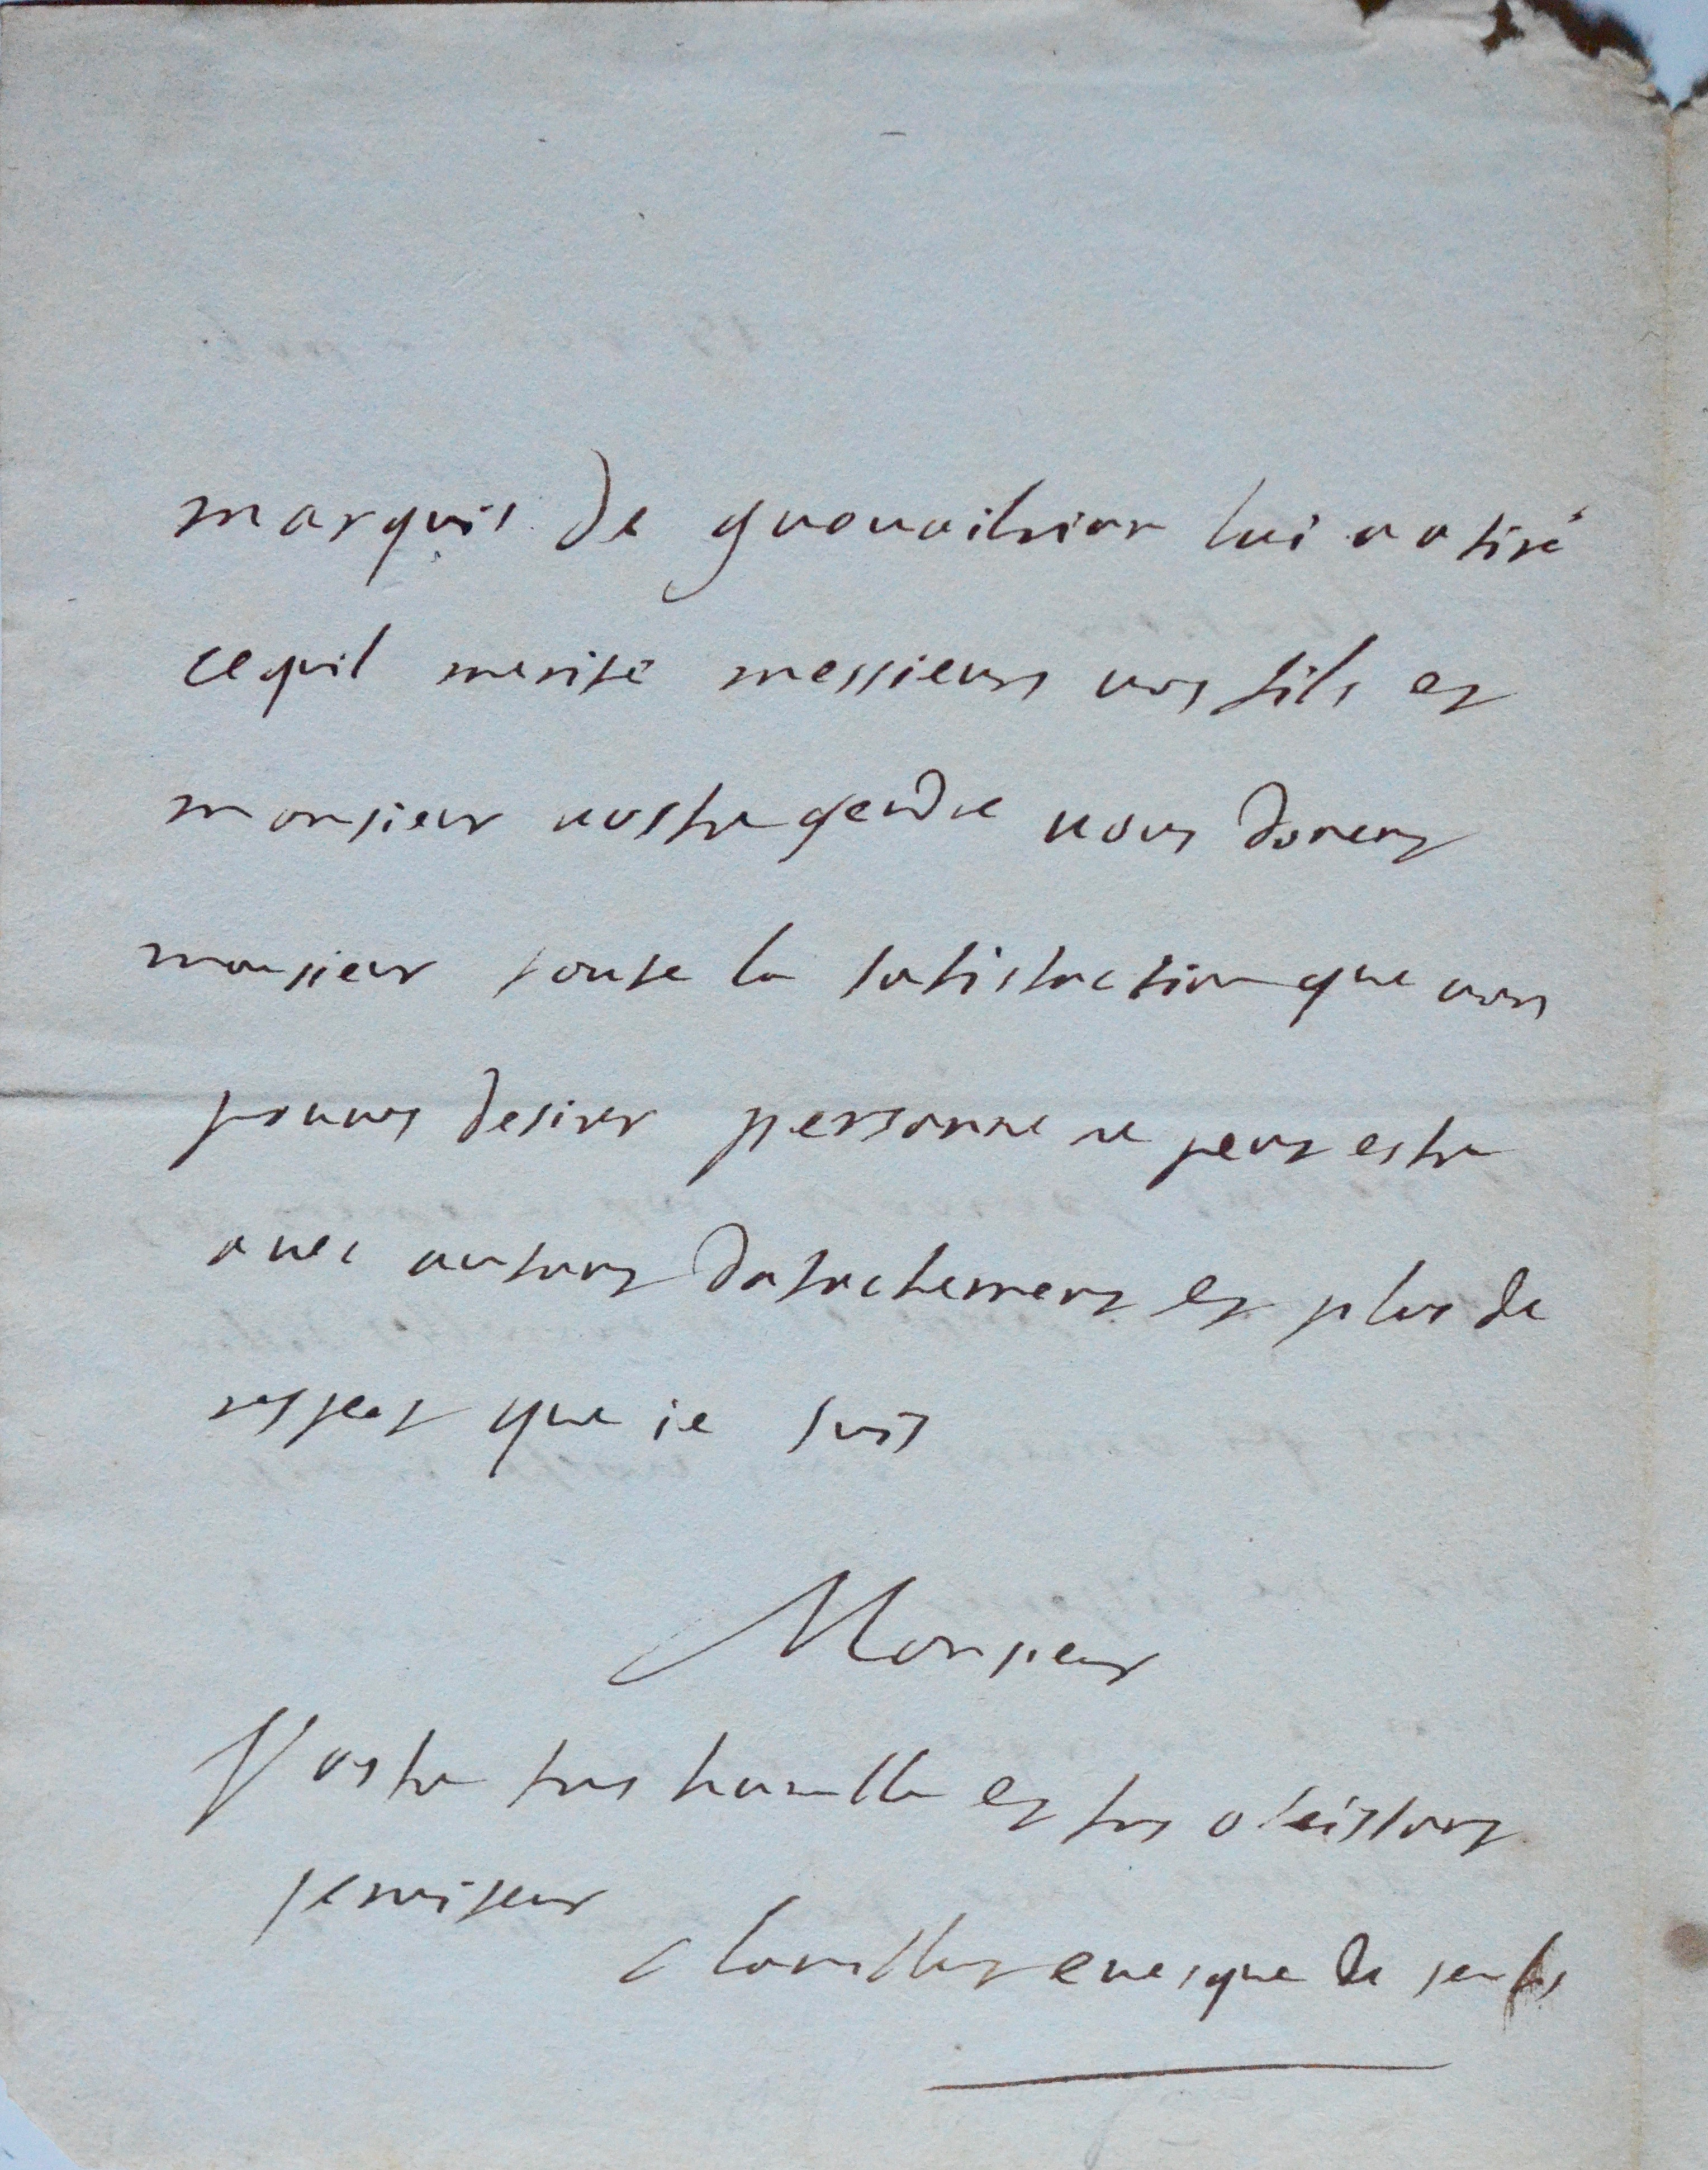 marquis de lui a atiré
cequil merité messieurs vos fils et
monsieur vostre gendre vous donent
monsieur toute la satisfaction que vous
pouvez desirer personne ne peut estre
avec autant datachement et plus de
respect que ie suis
Monsieur
Vostre tres humble et tres obeissant
serviteur
evesque de senlis